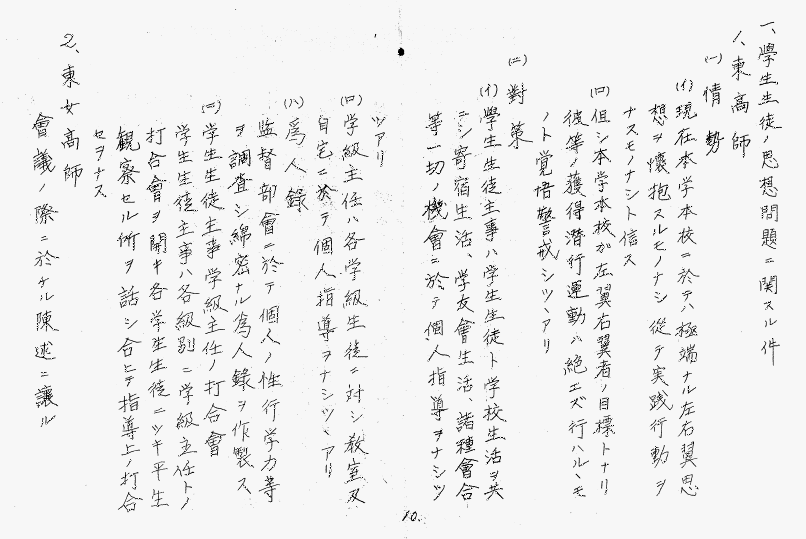 一、學生生徒ノ思想問題ニ関スル件
1、東高師
(一)情勢
(イ)現在本学本校ニ於テハ極端ナル左右翼思
想ヲ懐抱スルモノナシ従テ実践行動ヲ
ナスモノナシト信ス
(ロ)但シ本学本校ガ左翼右翼者ノ目標トナリ
彼等ノ獲得潜行運動ハ絶エズ行ハルヽモ
ノト覚悟警戒シツヽアリ
(二)對策
(イ)學生生徒主事ハ学生生徒ト学校生活ヲ共
ニシ寄宿生活、学友會生活、諸種會合
等一切ノ機會ニ於テ個人指導ヲナシツ
ツアリ
(ロ)学級主任ハ各学級生徒ニ対シ教室及
自宅ニ於テ個人指導ヲナシツヽアリ
(ハ)為人錄
監督部會ニ於テ個人ノ性行学力等
ヲ調査シ綿密ナル為人錄ヲ作製ス
(ニ)学生生徒主事学級主任ノ打合會
学生生徒主事ハ各級別ニ学級主任トノ
打合會ヲ開キ各学生生徒ニツキ平生
観察セル所ヲ話シ合ヒテ指導上ノ打合
セヲナス
2、東女高師
會議ノ際ニ於ケル陳述ニ讓ル
10.